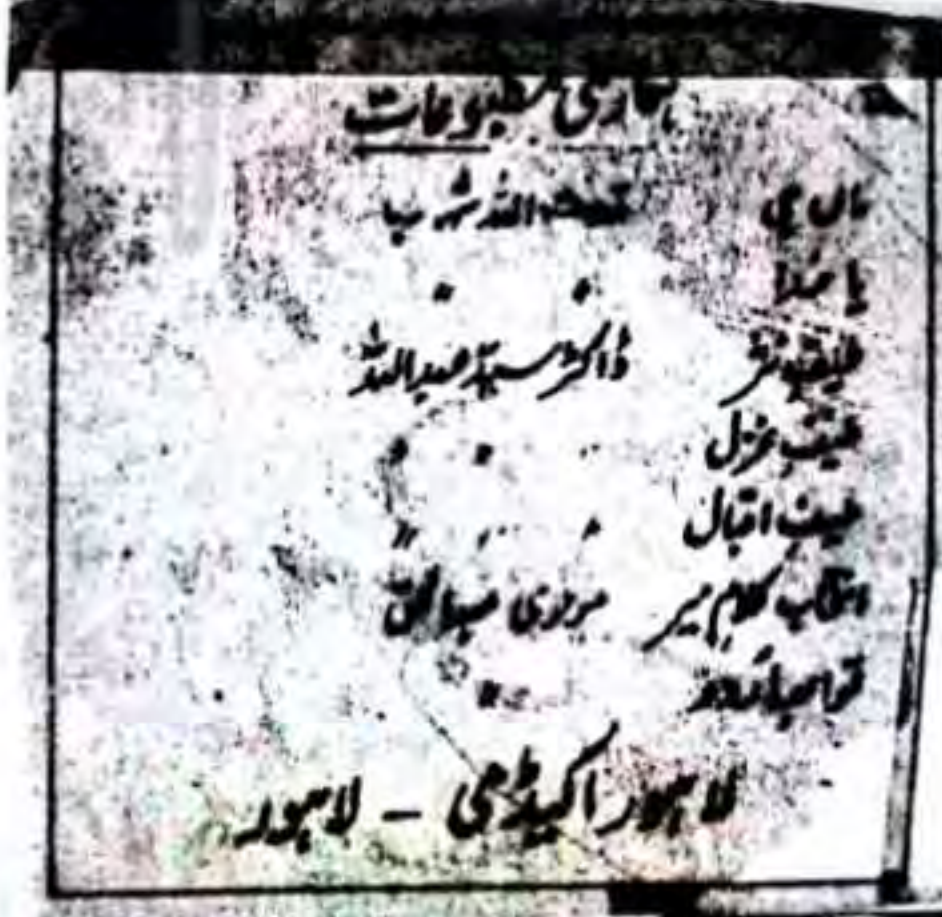 ہماری مطبوعات
ماں جی قدرت اللہ شہاب
یا خدا " "
طیف نثر ڈاکٹر سید عبداللہ
طیف غزل " " "
طیف اقبال " " "
انتخاب کلام میر مولوی عبدالحق
قواعد اردو " "
لاہور اکیڈمی - لاہور